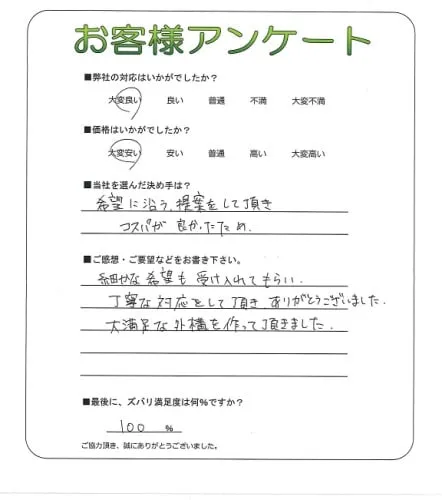 お客様アンケート
■弊社の対応はいかがでしたか?
大変良い 良い 普通 不満 大変不満
■価格はいかがでしたか?
大変安い 安い 普通 高い 大変高い
■当社を選んだ決め手は?
希望に沿う、提案をして頂き
コスパが良かったため.
■ご感想・ご要望などをお書き下さい。
細かな希望も受け入れてもらい.
丁寧な対応をして頂き、ありがとうございました.
大満足な外構を作って頂きました.
■最後に、ズバリ満足度は何%ですか?
100 %
ご協力頂き、誠にありがとうございました。